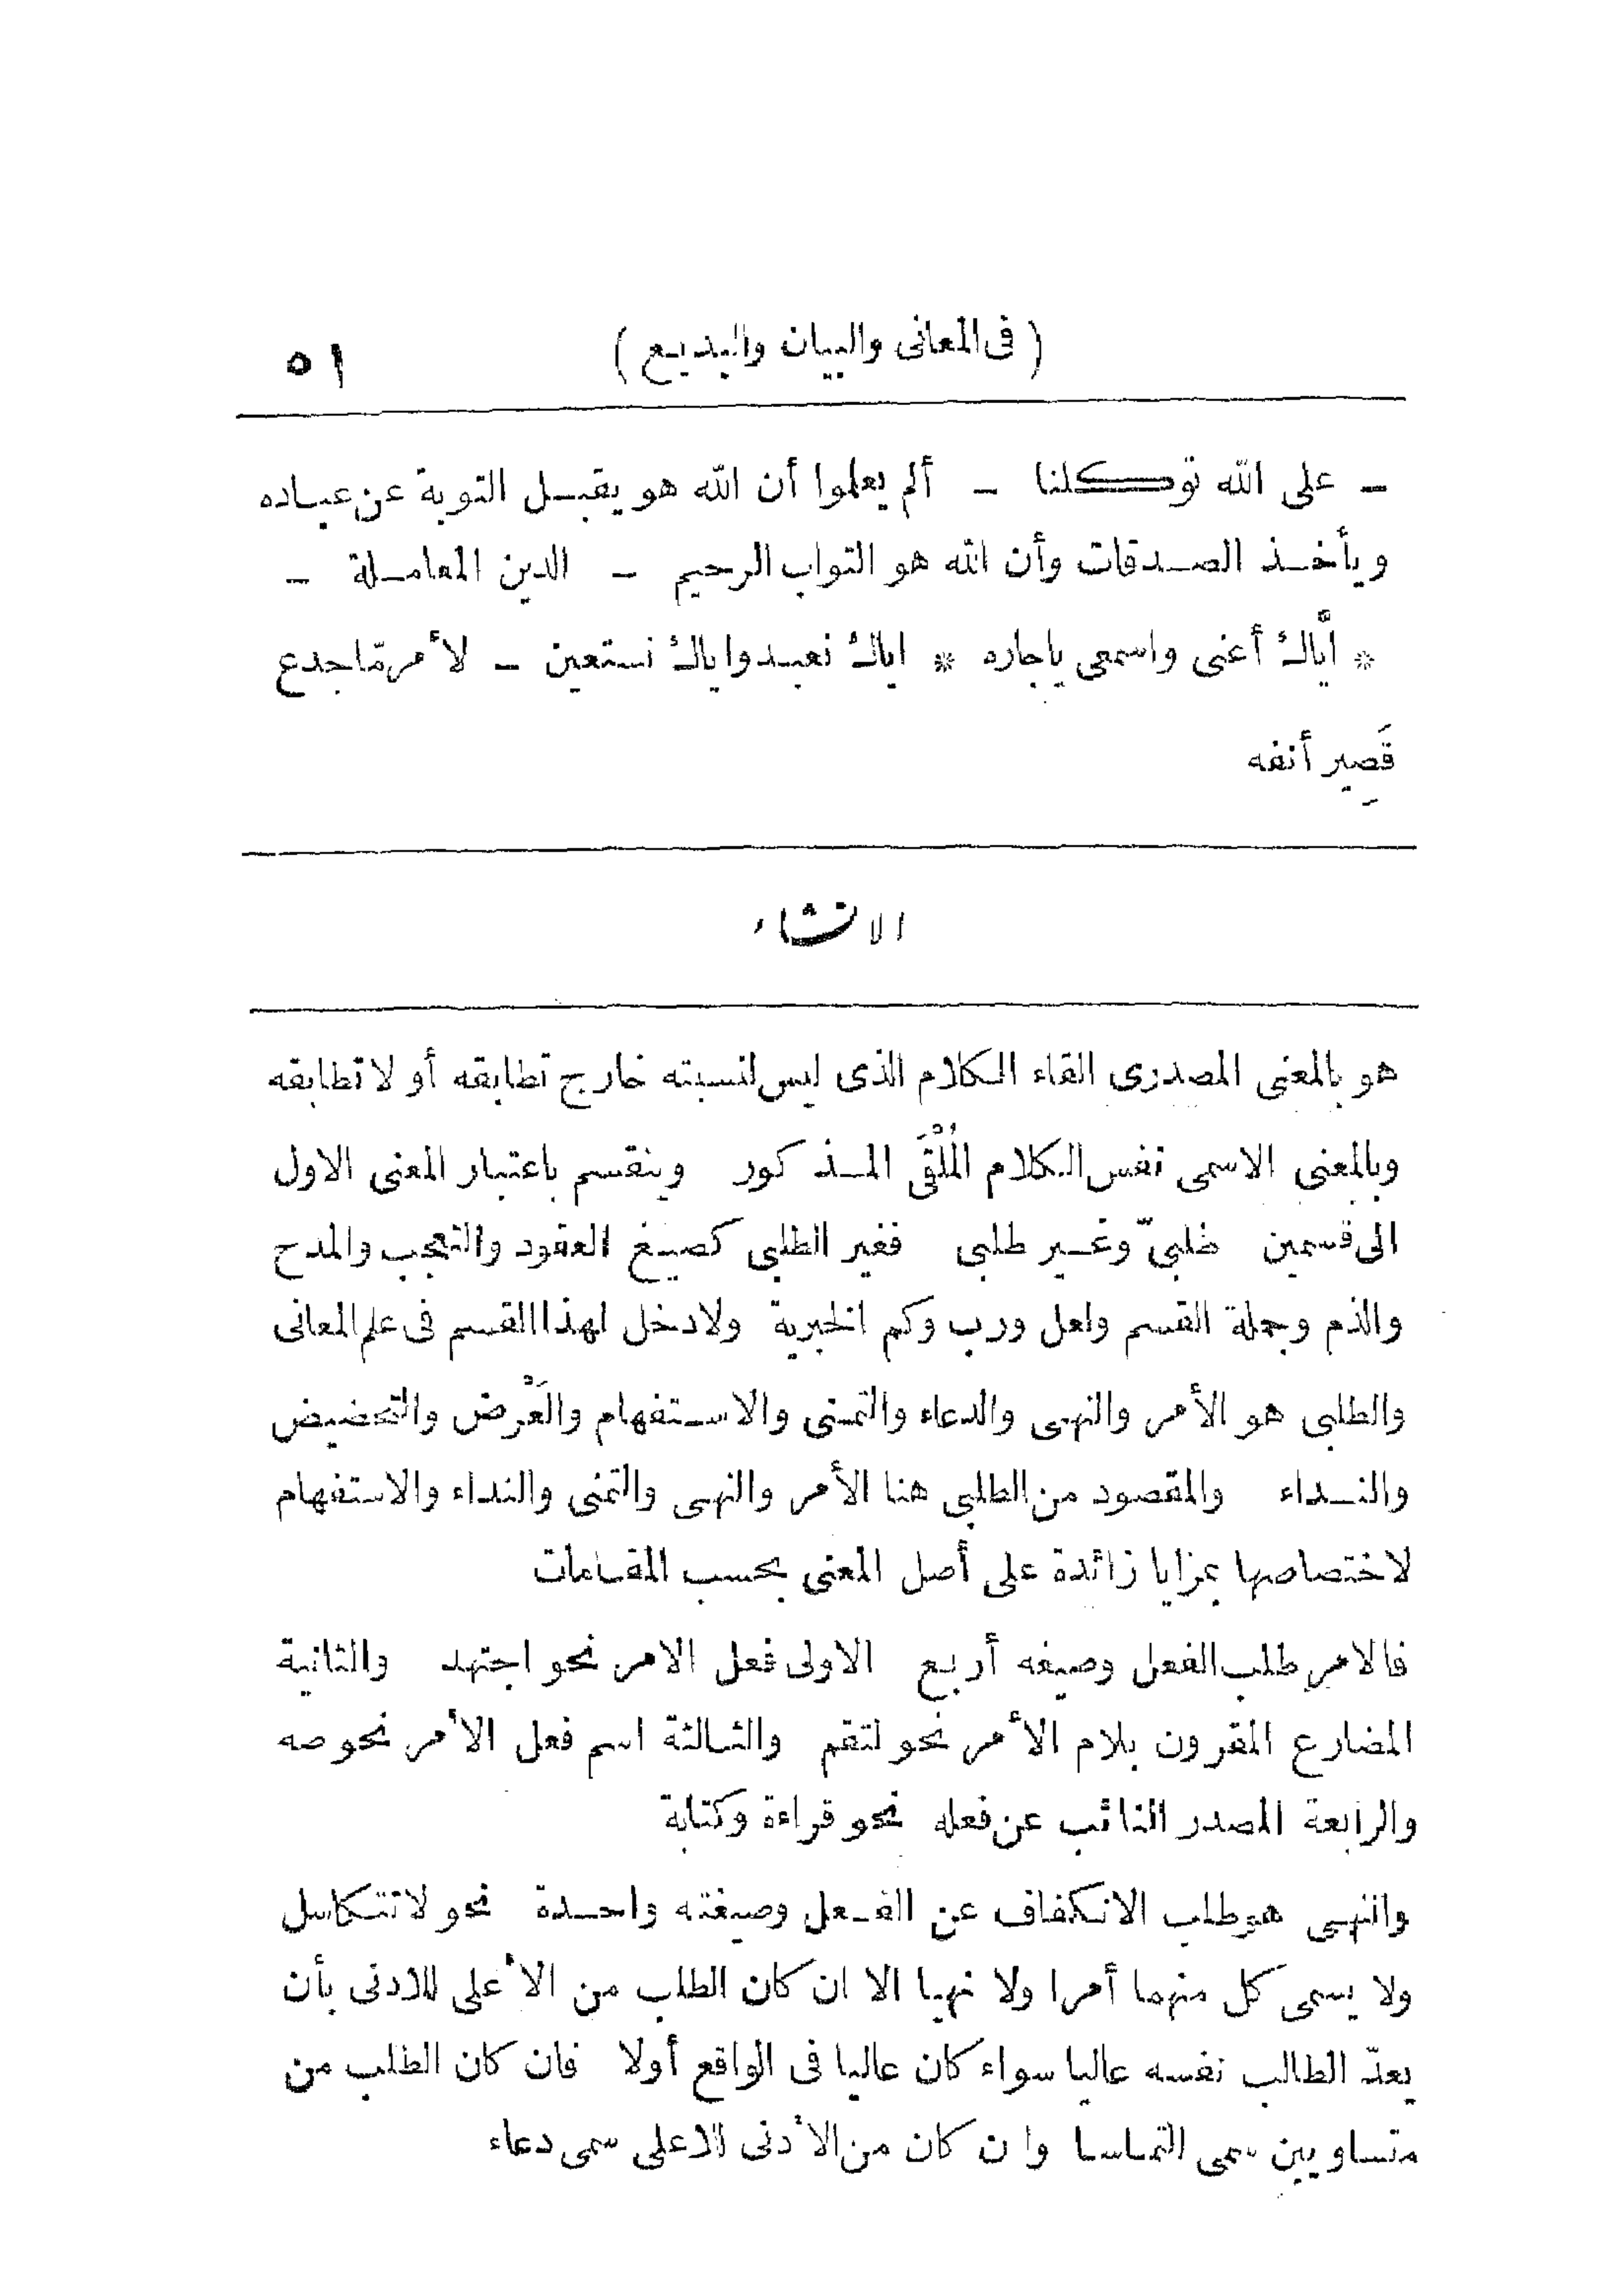 ( فى المعانى والبيان والبديع ) ٥١
– على الله توكلنا – ألم يعلموا أن الله هو يقبل التوبة عن عباده
ويأخذ الصدقات وأن الله هو التواب الرحيم – الدين المعاملة –
* اِيَّاكَ أعنى واسمعى ياجاره * اياك نعبد واياك نستعين – لأمر مّا جدع
قَصِير أنفه
الانشاء
هو بالمعنى المصدرى القاء الكلام الذى ليس لنسبته خارج تطابقه أو لا تطابقه
وبالمعنى الاسمى نفس الكلام المُلْقَى المذكور وينقسم باعتبار المعنى الاول
الى قسمين طلبىّ وغير طلبى فغير الطلبى كصيغ العقود والتعجب والمدح
والذم وجملة القسم ولعل ورب وكم الخبرية ولا دخل لهذا القسم فى علم المعانى
والطلبى هو الأمر والنهى والدعاء والتمنى والاستفهام والعَرْض والتحضيض
والنداء والمقصود من الطلبى هنا الأمر والنهى والتمنى والنداء والاستفهام
لاختصاصها بمزايا زائدة على أصل المعنى بحسب المقامات
فالامر طلب الفعل وصيغه أربع الاولى فعل الامر نحو اجتهد والثانية
المضارع المقرون بلام الأمر نحو لتقم والثالثة اسم فعل الأمر نحو صه
والرابعة المصدر النائب عن فعله نحو قراءة وكتابة
والنهى هو طلب الانكفاف عن الفعل وصيغته واحدة نحو لا تتكاسل
ولا يسمى كل منهما أمرا ولا نهيا الا ان كان الطلب من الأعلى للادنى بأن
يعدّ الطالب نفسه عاليا سواء كان عاليا فى الواقع أولا فان كان الطلب من
متساويين سمى التماسا وان كان من الأدنى للاعلى سمى دعاء